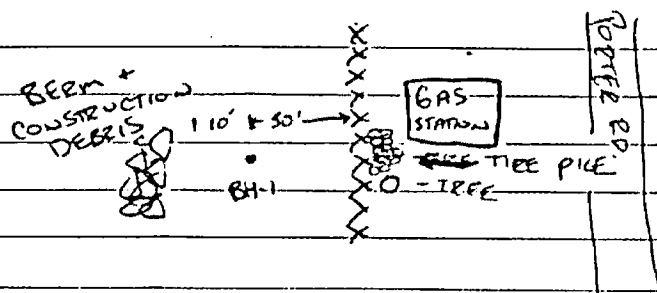 BERM +
CONSTRUCTION
DEBRIS
10' x 50'
BH-1
GAS
STATION
TIRE PILE
O - TREE
PORTER RD.